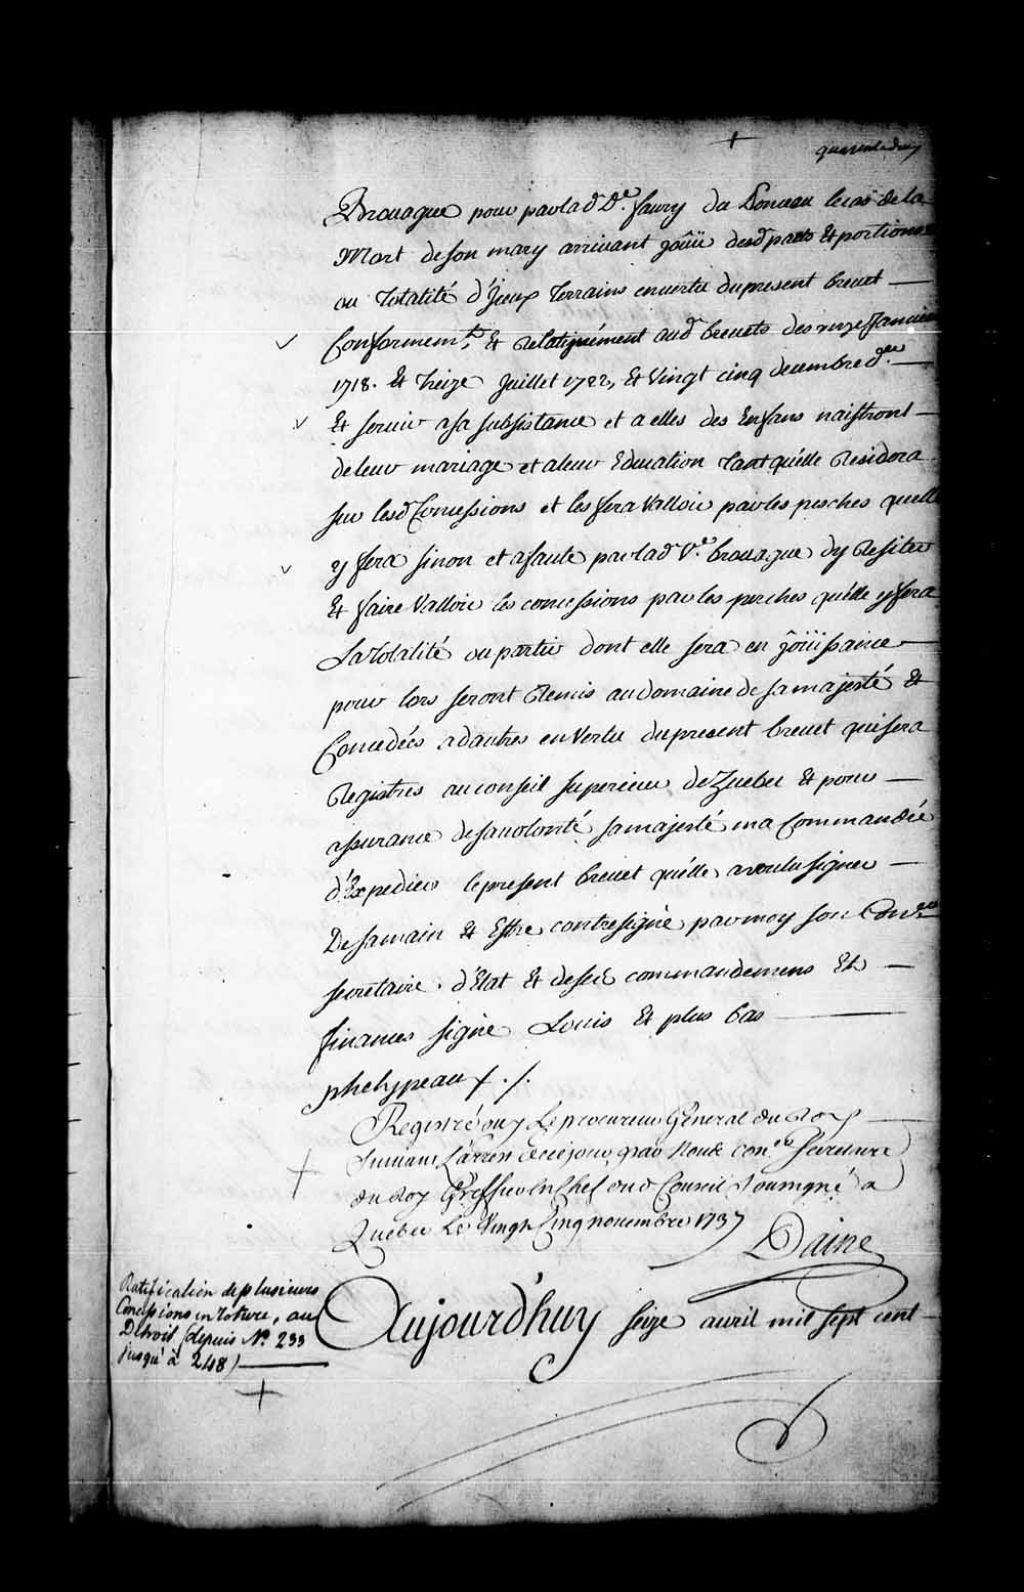 quarante deux
Brouague pour par lad De. faury du Ponceau le cas de la
Mort de son mary arrivant joüir desd parts Et portions
ou Totalité d'Jceux Terrains en vertu du present brevet
Conformemt, Et Relativement aud brevets des onze Janvier
1718. Et Treize Juillet 1722, Et Vingt cinq decembre der
Et servir a sa subsistance et a elles des Enfans naistront
de leur mariage et a leur Education Tant quélle Residera
sur lesd Concessions et les fera Valloir par les pesches quelle
y fera sinon et a faute par lad Ve. brouague dy Resider
Et faire Valloir les concessions par les pesches quélle y fera
La Totalité ou partie dont elle sera en joüissance
pour lors seront Remis au domaine de sa majesté Et
Concedées a dautres en Vertu du present brevet qui sera
Registrés au conseil superieur de Quebec Et pour
assurance de sa volonté sa majesté ma Commandée
d'Expedier le present brevet quélle a voulu signer
De sa main Et Estre contresigné par moy son Coner
secretaire d'Etat Et de ses commandemens Et
finances signé Louis Et plus bas
phelypeaux ./.
Registré ouy Le procureur General du Roy
suivant L'arrest de ce jour, par Nous conser Secretaire
du Roy Greffier en Chef aud Conseil soussigné a
Quebec Le Vingt Cinq novembre 1737
Daine
Ratification de plusieurs
Concessions en roture, au
Détroit (depuis No. 233
jusqu'à 248)
Aujourd'huy seize avril mil sept cent